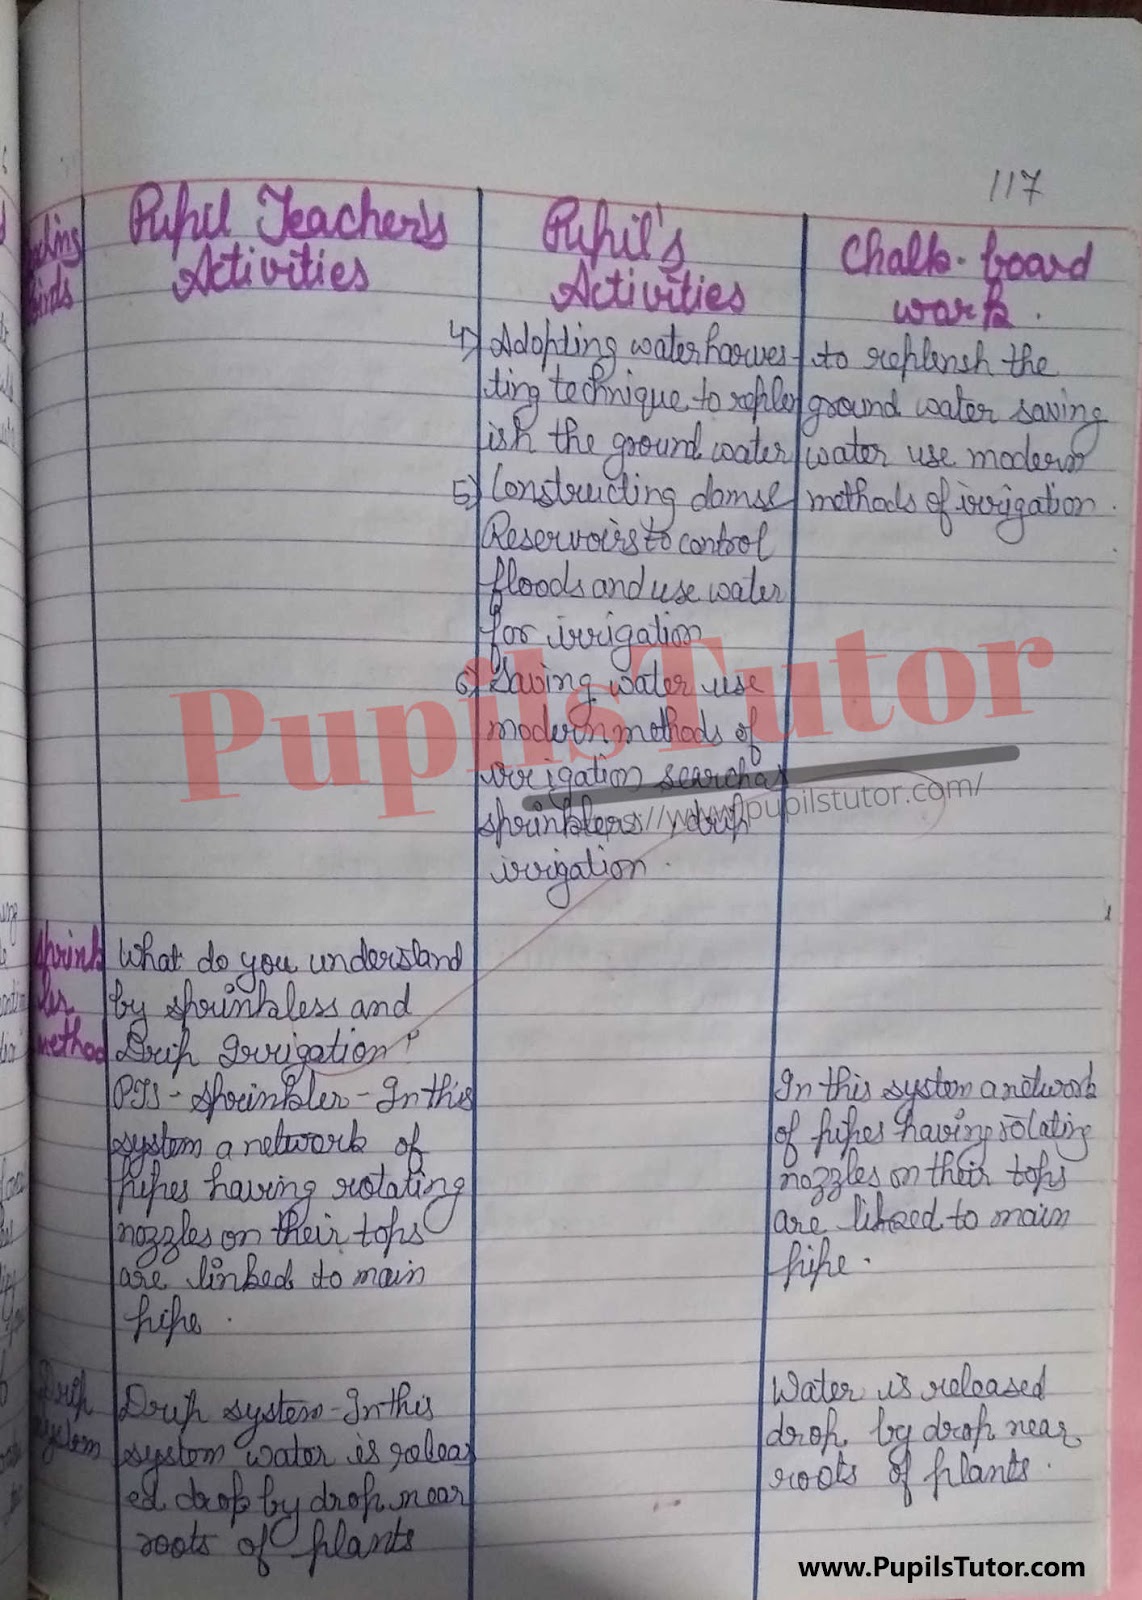 117
Pupil Teacher's
Activities
Pupil's
Activities
Chalk-board
work.
4) Adopting water harves-
ting technique to replen
ish the ground water
5) Constructing dams &
Reservoirs to control
floods and use water
for irrigation
6) Saving water use
modern methods of
irrigation
sprinklers, drip
irrigation.
to replensh the
ground water saving
water use modern
methods of irrigation.
Sprink
ler
method
What do you understand
by sprinkless and
Drip Irrigation?
PTS - Sprinkler - In this
system a network of
pipes having rotating
nozzles on their tops
are linked to main
pipe.
In this system a network
of pipes having rotating
nozzles on their tops
are linked to main
pipe.
Drip
system
Drip system - In this
system water is releas
ed drop by drop near
roots of plants
Water is released
drop by drop near
roots of plants.
PupilsTutor
://www.pupilstutor.com/
www.PupilsTutor.com